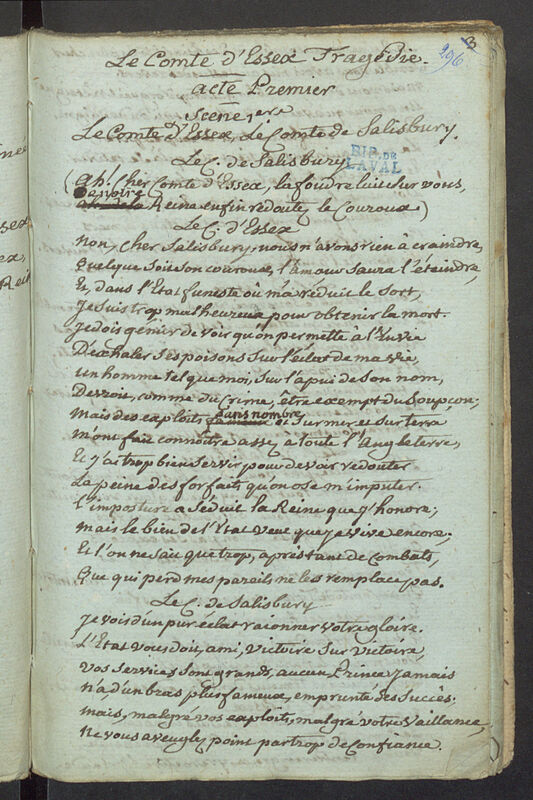 3
296
Le Comte d'Essex Tragedie.
acte Premier
Scene 1ere
Le Comte d'Essex, Le Comte de Salisbury.
BIB. DE
LAVAL
Le C. de Salisbury
(Ah! Cher Comte d'Essex, la foudre luit sur vous,
De notre
Reine enfin redoutez le Couroux)
Le C. d'Essex
Non, cher Salisbury, nous n'avons rien à craindre,
quelque soit son couroux, l'amour saura l'étaindre,
Et, dans l'Etat funeste où m'a réduit le sort,
Je suis trop malheureux pour obtenir la mort.
Je dois gemir de voir qu'on permette à l'Envie
D'exhaler ses poisons sur l'éclat de ma vie,
un homme tel que moi, sur l'apui de son nom,
Devroit, comme du Crime, être exempt du Soupçon;
mais des exploits sans nombre et sur mer et sur terre
m'ont fait connoître assez a toute l'Angleterre,
Et j'ai trop bien servir pour devoir redouter
La peine des forfaits qu'on ose m'imputer.
l'imposture a séduit la Reine que j'honore;
mais le bien de l'Etat veut que je vive encore.
Et l'on ne sait que trop, après tant de combats,
Que qui perd mes pareils ne les remplace pas.
Le C. de Salisbury
Je vois d'un pur éclat raionner votre gloire.
L'Etat vous doit, ami, victoire sur victoire,
vos services sont grands, aucun Prince jamais
n'a d'un bras plus fameux, emprunté des succès;
mais, malgré vos exploits, malgré votre vaillance,
Ne vous aveuglez point par trop de confiance.